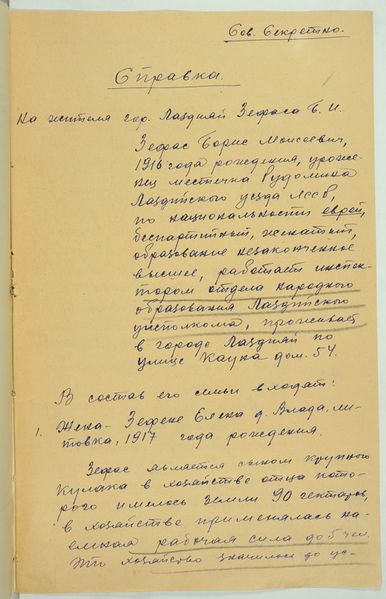 Сов. Секретно.
Справка.
На жителя гор. Лаздияй Зефаса Б. И.
Зефас Борис Моисеевич,
1916 года рождения, уроже-
нец местечка Рудомина
Лаздийского уезда ЛССР,
по национальности еврей,
беспартийный, женатый,
образование незаконченное
высшее, работает инспек-
тором отдела народного
образования Лаздийского
уисполкома, проживает
в городе Лаздияй по
улице Кауна дом. 54.
В состав его семьи входят:
1. Жена - Зефене Елена д. Влада, ли-
товка, 1917 года рождения.
Зефас является сыном крупного
кулака в хозяйстве отца кото-
рого имелось земли 90 гектаров,
в хозяйстве применялась на-
емная рабочая сила до 6 чел.
Это хозяйство значилось до